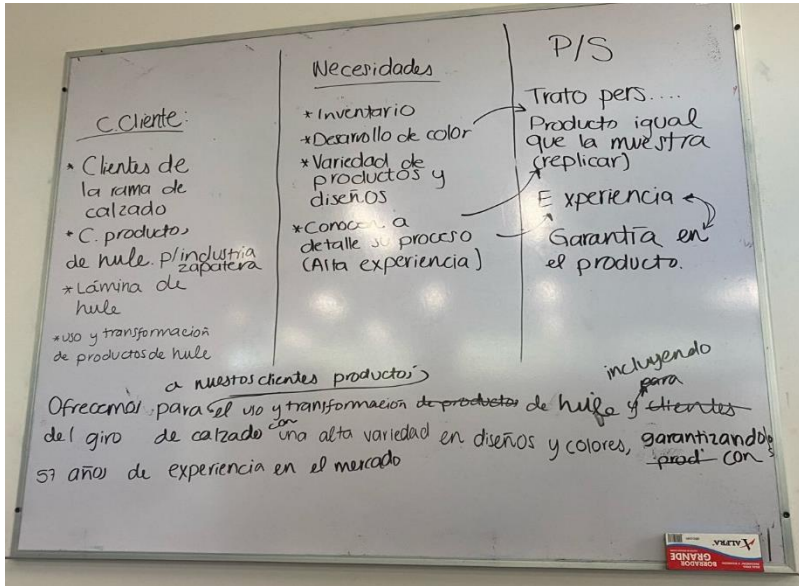 C.Cliente:
* Clientes de
la rama de
calzado
* C. productos
de hule p/industria
zapatera
* Lámina de
hule
* uso y transformación
de productos de hule
Necesidades
* Inventario
* Desarrollo de color
* Variedad de
productos y
diseños
* Conocer a
detalle su proceso
(Alta experiencia)
P/S
Trato pers....
Producto igual
que la muestra
(replicar)
Experiencia
Garantía en
el producto.
a nuestos clientes productos
incluyendo
Ofrecemos para el uso y transformación de productos de hule y para clientes
del giro de calzado con una alta variedad en diseños y colores, garantizandolos
57 años de experiencia en el mercado prod con
ALPHA
BORRADOR
GRANDE